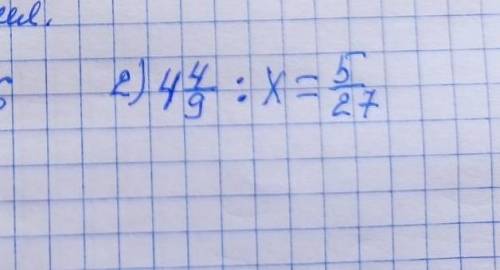 2) 4 4/9 : x = 5/27